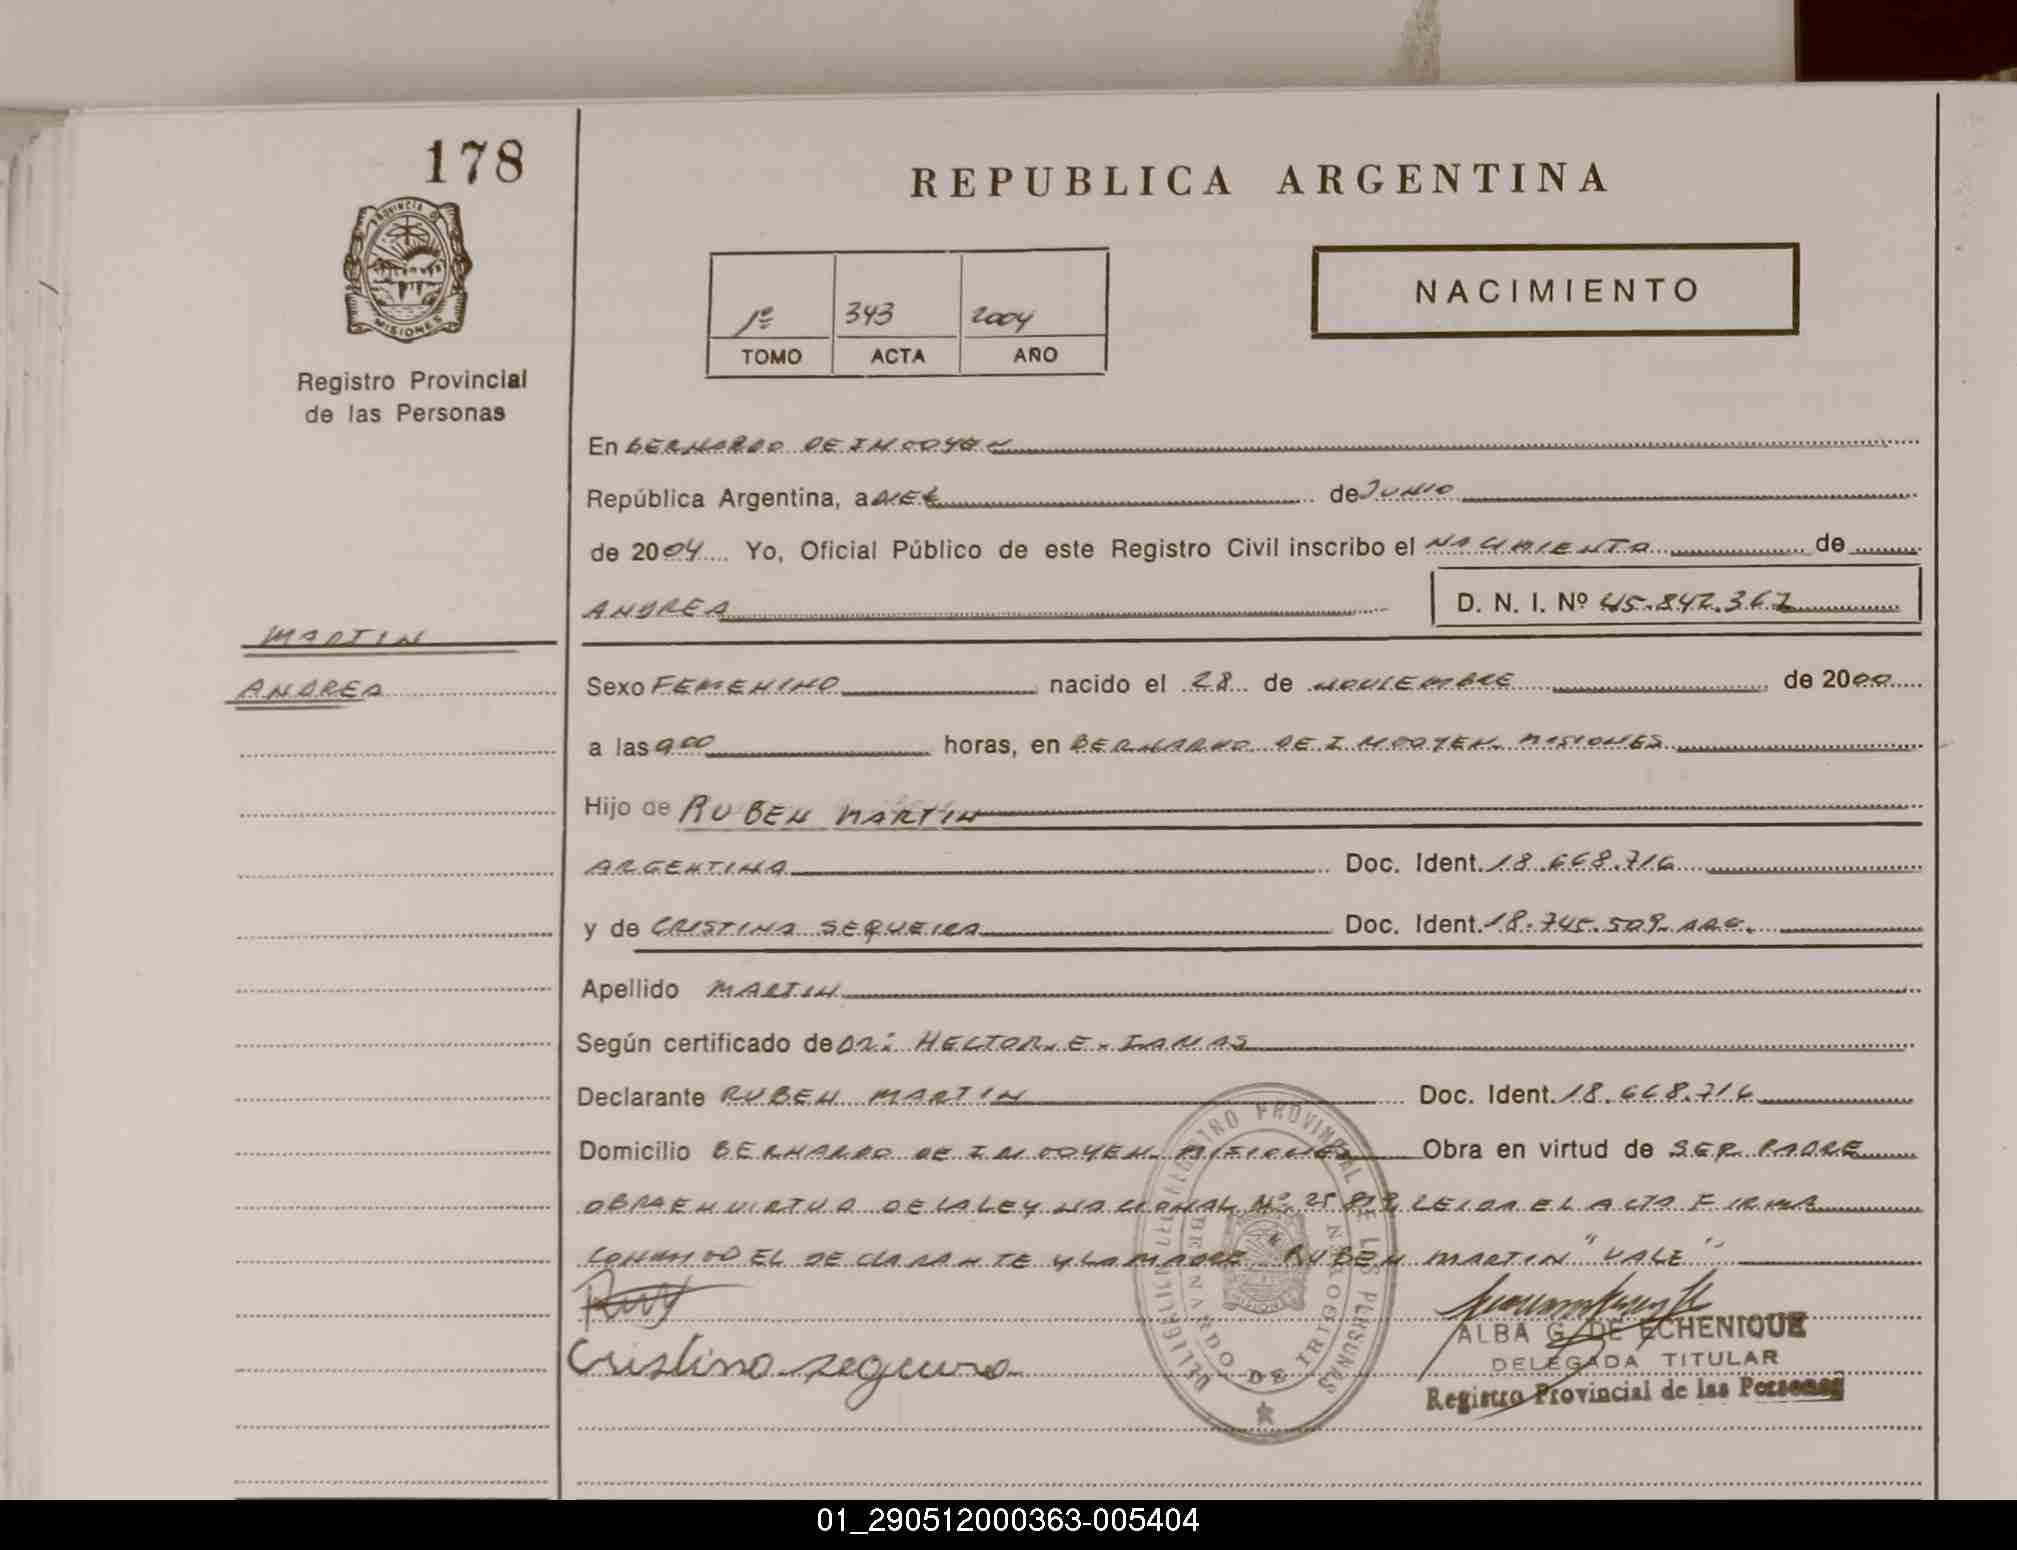 178
PROVINCIA DE
MISIONES
Registro Provincial
de las Personas
REPUBLICA ARGENTINA
NACIMIENTO
1º 343 2004
TOMO ACTA AÑO
En BERNARDO DE IRIGOYEN
República Argentina, a de JUNIO
de 2004 Yo, Oficial Público de este Registro Civil inscribo el NACIMIENTO de
ANDREA D. N. I. Nº 45.842.367
MARTIN
ANDREA
Sexo FEMENINO nacido el 28 de NOVIEMBRE de 2000
a las 9 00 horas, en BERNARDO DE IRIGOYEN MISIONES
Hijo de RUBEN MARTIN
ARGENTINA Doc. Ident. 18.668.716
y de CRISTINA SEQUEIRA Doc. Ident. 18.745.509
Apellido MARTIN
Según certificado de DR: HECTOR E.
Declarante RUBEN MARTIN Doc. Ident. 18.668.716
Domicilio BERNARDO DE IRIGOYEN MISIONES Obra en virtud de SER PADRE
OBRA EN VIRTUD DE LA LEY NACIONAL Nº 25.819 LEIDA EL ACTA FIRMA
CONMIGO EL DECLARANTE Y LA MADRE "RUBEN MARTIN" "VALE"
Cristina
ALBA G. DE ECHENIQUE
DELEGADA TITULAR
Registro Provincial de las Personas
REGISTRO PROVINCIAL DE LAS PERSONAS
BERNARDO DE IRIGOYEN
01_290512000363-005404